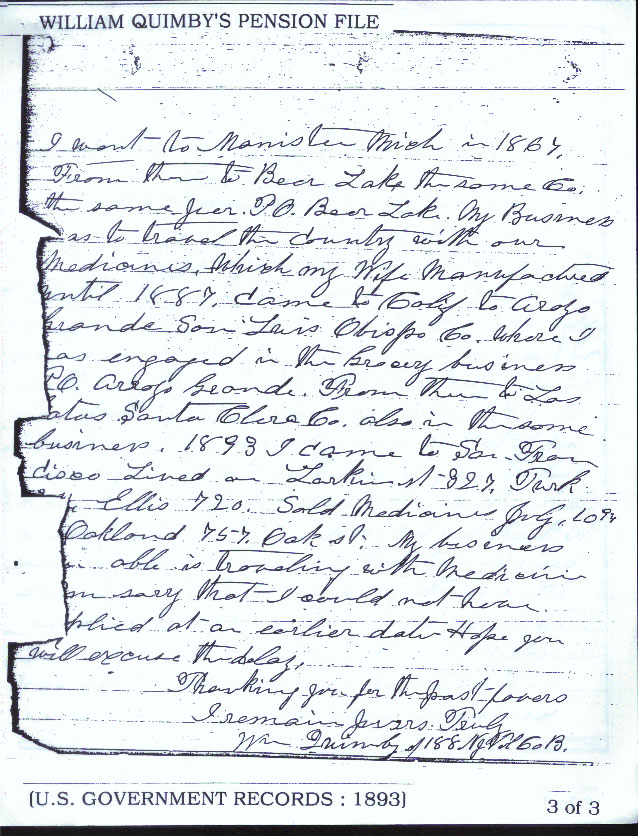 WILLIAM QUIMBY'S PENSION FILE
I went to Manistee Mich in 1867.
From there to Bear Lake the same Co.
the same year. P.O. Bear Lake. My Business
as to travel the Country with our
Medicines, which my Wife Manufactued
until 1887, came to Calif to Aroyo
Grande San Luis Obispo Co. where I
as engaged in the Grocery business
P.O. Arroyo Grande. From there to Los
atus Santa Clara Co. also in the same
business. 1893 I came to San Fran
cisco Lived on Larkin st 327, Turk
Ellis 720. Sold Medicines July, 1094
Oakland 757 Oak st. My business
able is traveling with Medicine
m sary that I could not have
plied at an earlier date Hope you
will excuse the delay,
Thanking you for the past favors
I remain Yours Truly
Wm Quimby of 188 NY Vol Co B.
[U.S. GOVERNMENT RECORDS : 1893]
3 of 3